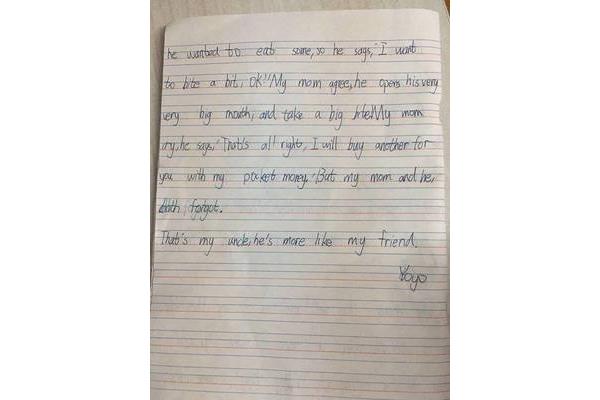 he wanted to eat some, so he says, "I want
to bite a bit, OK!" My mom agree, he opens his very
very big mouth, and take a big bite! My mom
cry, he says, "That's all right, I will buy another for
you with my pocket money." But my mom and he,
both forgot.
That's my uncle, he's more like my friend.
Yoyo